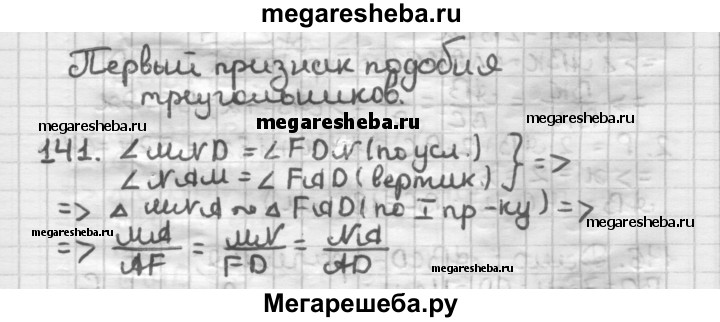 megaresheba.ru
Первый признак подобия
треугольников.
megaresheba.ru megaresheba.ru megaresheba.ru
141. ∠MND = ∠FDN (по усл.) } =>
∠NAM = ∠FAD (вертик.)
=> △MNA ~ △FAD (по I пр-ку) =>
megaresheba.ru megaresheba.ru
=> MA/AF = MN/FD = NA/AD
megaresheba.ru
Мегарешеба.ру